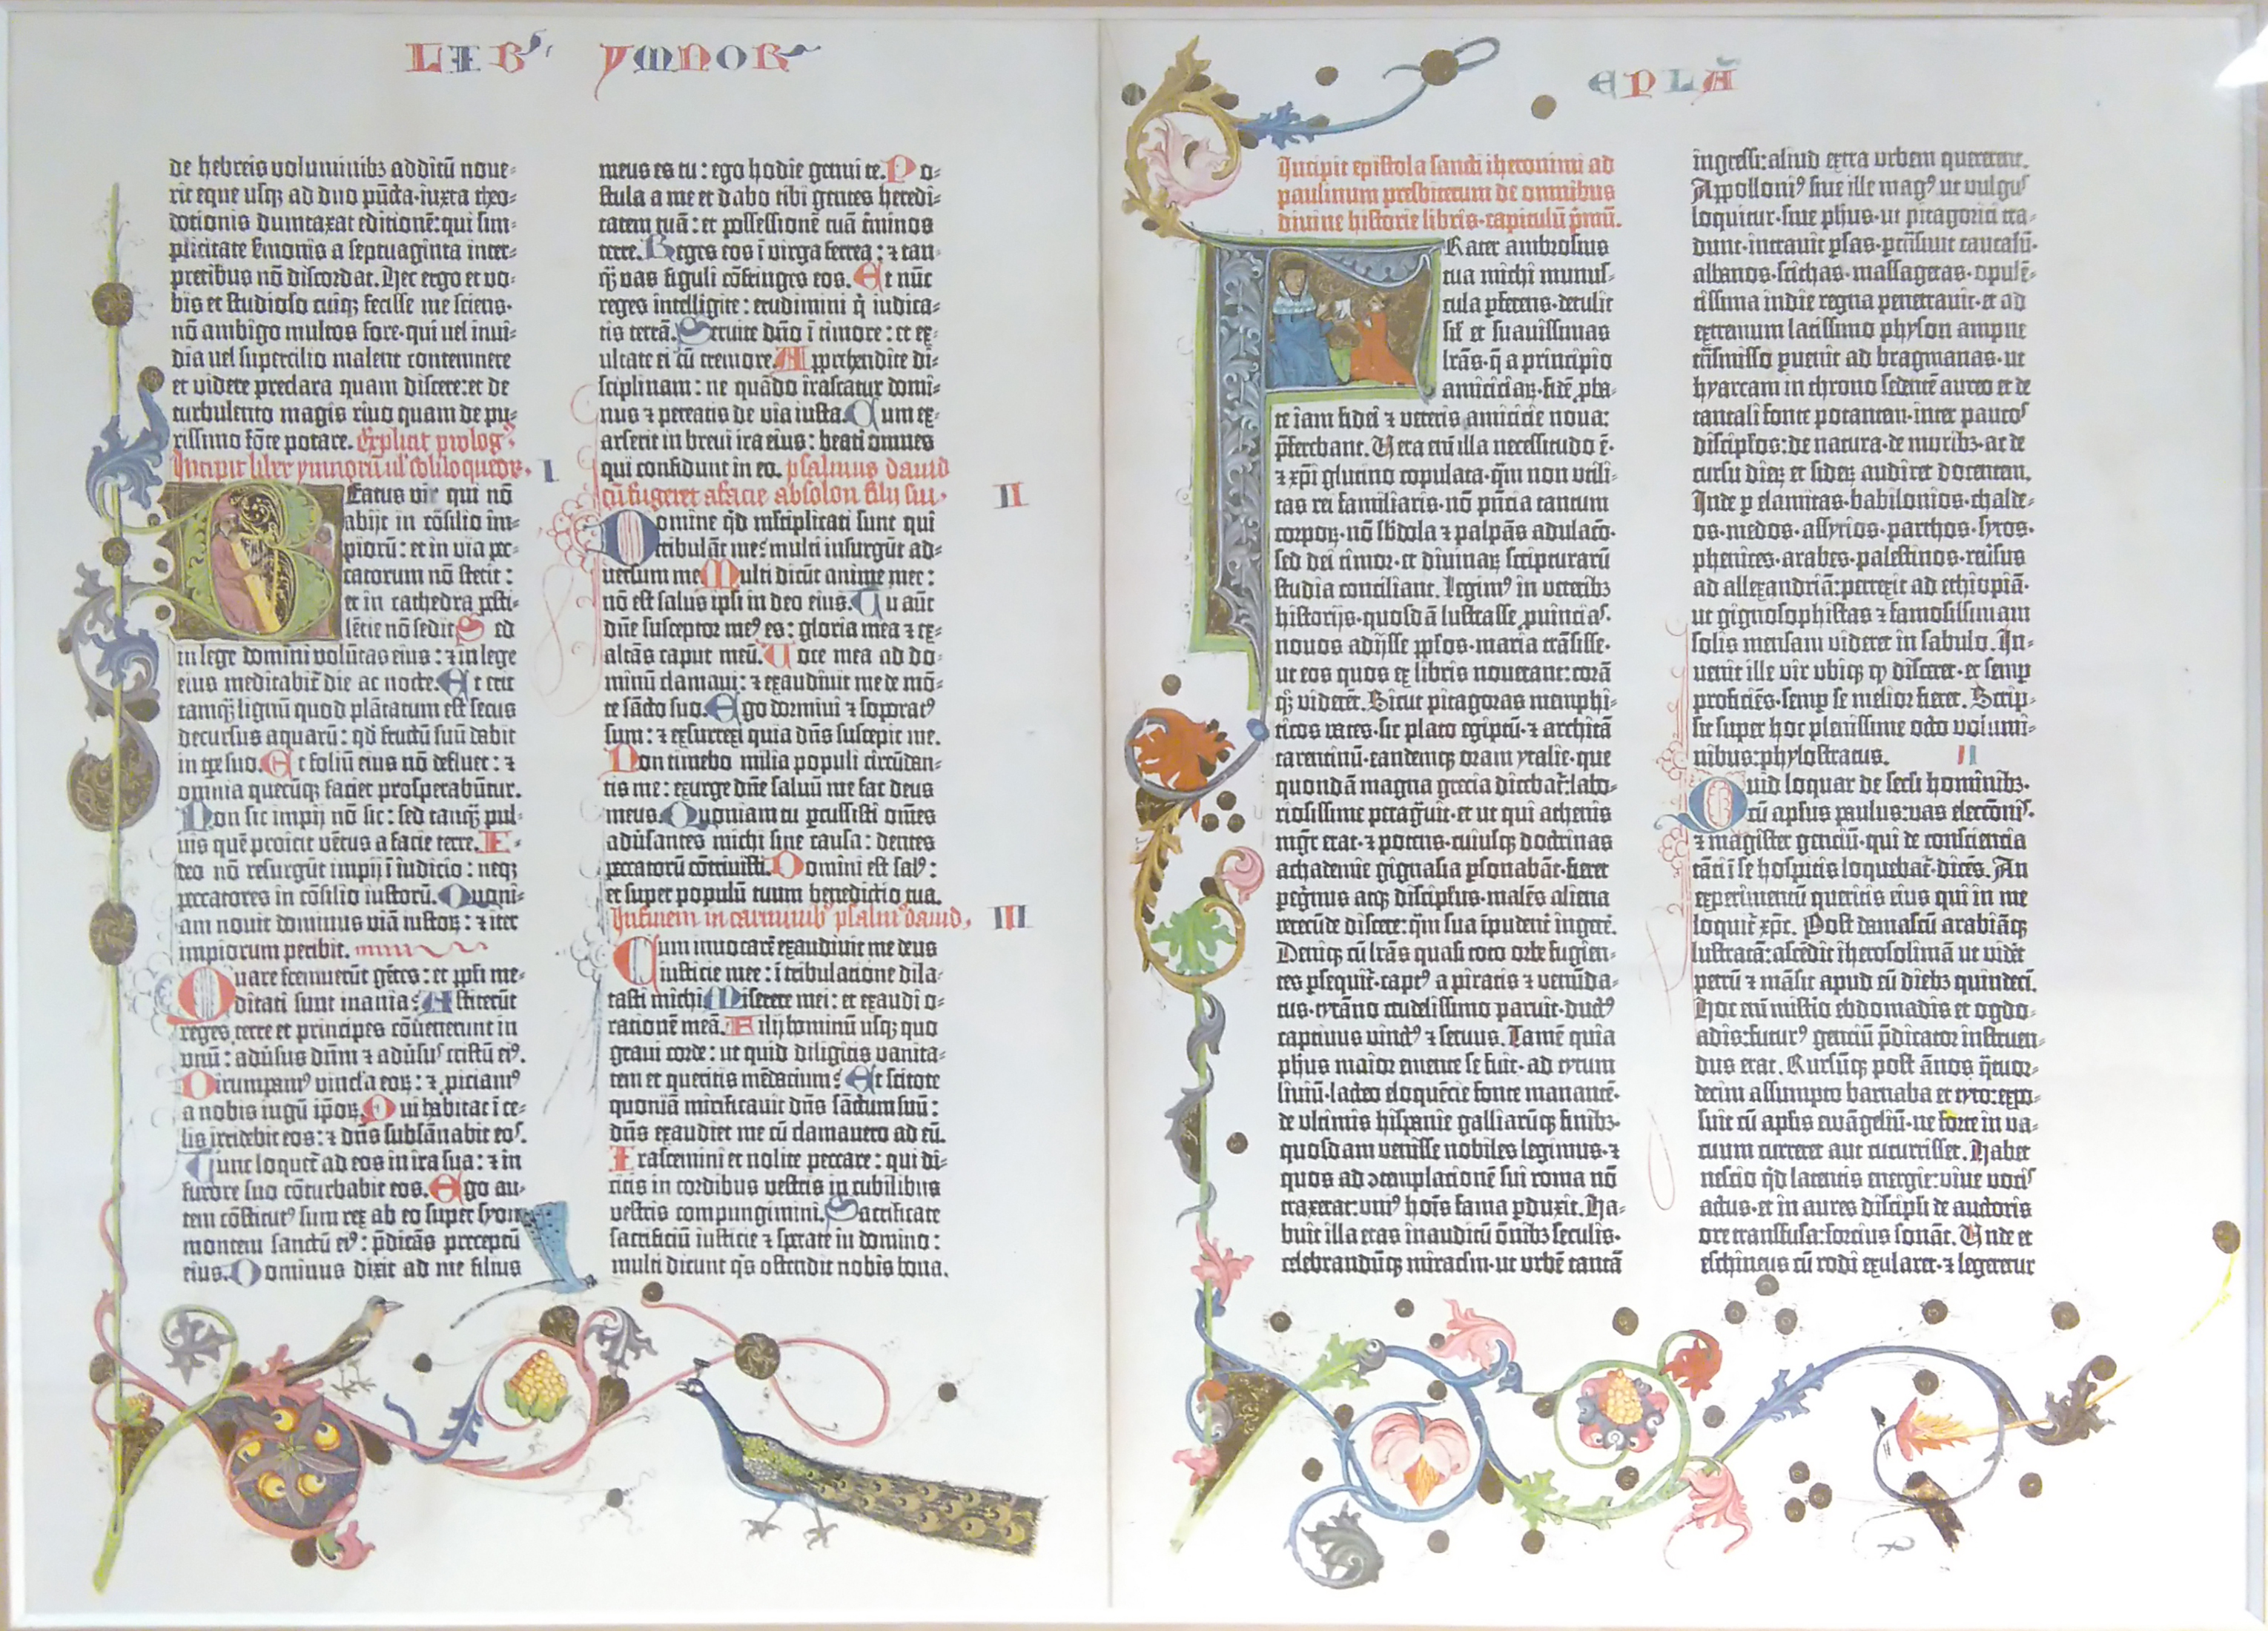 LIBꝰ YMNOR
de hebreis voluminibꝫ additū noue-
rit eque usqꝫ ad duo pūcta·iuxta theo-
dotionis dumtaxat editionē: qui sim-
plicitate ẜmonis a septuaginta inter-
pretibus nō discordat. Hec ergo et vo-
bis et studioso cuiqꝫ fecisse me sciens·
nō ambigo multos fore·qui vel invi-
dia vel supercilio malent contemnere
et videre preclara quam discere: et de
turbulento magis rivo quam de pu-
rissimo fōte potare. Explicit prologꝰ
Incipit liber ymnorū ul' soliloquiorꝫ. I
Beatus vir qui nō
abijt in cōsilio im-
piorū: et in via pec-
catorum nō stetit:
et in cathedra pesti-
lētie nō sedit. Sed
in lege domini volūtas eius: ⁊ in lege
eius meditabit̄ die ac nocte. Et erit
tamqꝫ lignū quod plātatum est secus
decursus aquarū: qd̄ fructū suū dabit
in tp̄e suo. Et foliū eius nō defluet: ⁊
omnia quecūqꝫ faciet prosperabūtur.
Non sic impij nō sic: sed tanqꝫ pul-
vis quē proicit vētus a facie terre. I-
deo nō resurgūt impij ī iudicio: neqꝫ
peccatores in cōsilio iustorū. Quoni-
am novit dominus viā iustoꝝ: ⁊ iter
impiorum peribit.
Quare fremuerūt gētes: et ppl̄i me-
ditati sunt inania? Astiterūt
reges terre et principes cōvenerunt in
vnū: advīsus dūm ⁊ advīsuˢ cristū eiꝰ.
Dirumpamꝰ vincl'a eoꝝ: ⁊ piciamꝰ
a nobis iugū ip̄oꝝ. Qui habitat ī ce-
lis irridebit eos: ⁊ dn̄s subsānabit eoˢ.
Tunc loquet̄ ad eos in ira sua: ⁊ in
furore suo cōturbabit eos. Ego au-
tem cōstitutꝰ sum rex ab eo super syon
montem sanctū eiꝰ: p̄dicās preceptū
eius. Dominus dixit ad me filius
meus es tu: ego hodie genui te. Po-
stula a me et dabo tibi gentes heredi-
tatem tuā: et possessionē tuā t̄minos
terre. Reges eos ī virga ferrea: ⁊ tan-
qꝫ vas figuli cōfringes eos. Et nūc
reges intelligite: erudimini q̄ iudica-
tis terrā. Servite dn̄o ī timore: et ex-
ultate ei cū tremore. Apprehendite di-
sciplinam: ne quādo irascatur domi-
nus ⁊ pereatis de via iusta. Cum ex-
arserit in brevi ira eius: beati omnes
qui confidunt in eo. psalmus david
cū fugeret a facie absolon filij sui· II
Domine qd̄ ml̄tiplicati sunt qui
tribulāt me? multi insurgūt ad-
versum me. Multi dicūt anime mee:
nō est salus ipsi in deo eius. Tu aūt
dn̄e susceptor meꝰ es: gloria mea ⁊ ex-
altās caput meū. Voce mea ad do-
minū clamavi: ⁊ exaudivit me de mō-
te sācto suo. Ego dormivi ⁊ soporatꝰ
sum: ⁊ exsurrexi quia dn̄s suscepit me.
Non timebo milia populi circūdan-
tis me: exurge dn̄e salvū me fac deus
meus. Quoniam tu p̄cussisti om̄es
advīsantes michi sine causa: dentes
peccatorū cōtrivisti. Domini est salꝰ:
et super populū tuum benedictio tua.
In finem in carminibꝰ psalmꝰ david. III
Cum invocarē exaudivit me deus
iusticie mee: ī tribulatione dila-
tasti michi. Miserere mei: et exaudi o-
rationē meā. Filij hominū usqꝫ quo
gravi corde: ut quid diligitis vanita-
tem et queritis mēdacium? Et scitote
quoniā mirificavit dn̄s sāctum suū:
dn̄s exaudiet me cū clamavero ad eū.
Irascemini et nolite peccare: qui di-
citis in cordibus vestris in cubilibus
vestris compungimini. Sacrificate
sacrificiū iusticie ⁊ sperate in domino:
multi dicunt qꝭ ostendit nobis bona.
EPLA
Incipit epistola sancti iheronimi ad
paulinum presbiterum de omnibus
divine historie libris·capitulū p̄mū.
FRater ambrosius
tua michi munus-
cula p̄ferens·detulit
sil̄' et suavissimas
lr̄as·q̄ a principio
amiciciaꝝ·fidē p̱ba-
te iam fidei ⁊ veteris amicicie nova:
p̄ferebant. Vera enī illa necessitudo ē·
⁊ xp̄i glutino copulata·qm̄ non utili-
tas rei familiaris·nō pn̄cia tantum
corpoꝝ·nō sb̄dola ⁊ palpās adulaco·
sed dei timor·et divinaꝝ scripturarū
studia conciliant. Legimꝰ in veteribꝫ
historijs·quosdā lustrasse p̱vinciaˢ·
novos adijsse pp̄los·maria trāsisse·
ut eos quos ex libris noverant: corā
qꝫ viderēt. Sicut pitagoras memphi-
ticos vates·sic plato egiptū·⁊ architā
tarentinū·eandemqꝫ oram ytalie·que
quondā magna grecia dicebat̄: labo-
riosissime peragvit·et ut qui athenis
mgr̄ erat·⁊ potens·cuiusqꝫ doctrinas
achademie gignasia p̱sonabāt·fieret
peg̱rinus atqꝫ discipl̄us·malēs aliena
verecūde discere: qm̄ sua īpudent' ingere̅.
Deniqꝫ cū lr̄as quasi toto orbe fugien-
tes p̱sequit̄·captꝰ a piratis ⁊ venūda-
tus·tyrāno crudelissimo paruit·ductꝰ
captivus vinctꝰ ⁊ servus. Tamē quia
ph̄us maior emente se fuit·ad tytum
liviū·lacteo eloquēcie fonte manantē·
de vltimis hispanie galliarūqꝫ finibꝫ·
quosdam venisse nobiles legimus·⁊
quos ad ↄtemplacionē sui roma nō
traxerat: vniꝰ hoīs fama p̱duxit. Ha-
buit illa etas inauditū ōnibꝫ seculis·
celebrandūqꝫ miraclm·ut urbē tantā
ingressi: aliud extra vrbem quererent.
Appolloniꝰ sive ille magꝰ ut vulgus
loquitur·sive ph̄us·ut pitagorici tra-
dunt·intravit p̱sas·p̱trāsivit caucasū·
albanos·scithas·massagetas·opulē-
tissima indie regna penetravit·et ad
extremum latissimo physon ampne
trāsmisso p̱venit ad bragmanas·ut
hyarcam in throno sedentē aureo et de
tantali fonte potantem·inter paucoˢ
discipl̄os: de natura·de moribꝫ·ac de
cursu dieꝝ et sideꝝ audiret docentem.
Inde p̱ elamitas·babilonios·chalde-
os·medos·assyrios·parthos·syros·
phenices·arabes·palestinos·reūsus
ad allexandriā: perrexit ad ethiopiā·
ut gignosophistas ⁊ famosissimam
solis mensam videret in sabulo. In-
venit ille vir vbiqꝫ qꝙ disceret·et semp̱
proficiēs·semp̱ se melior fieret. Scrip-
sit super hoc plenissime octo volumi-
nibus: phylostratus. II
Quid loquar de secl'i hominibꝫ·
cū apl̄us paulus: vas eleccōniˢ·
⁊ magister genciū·qui de consciencia
tāti ī se hospicis loquebat̄·dicēs. An
experimentū queritis eius qui in me
loquit̄ xp̄c. Post damascū arabiāqꝫ
lustratā: ascēdit iherosolimā ut vidēt
petrū ⁊ māsit apud eū diebꝫ quindeci.
Hoc enī mistio ebdomadis et ogdo-
adis: futurꝰ genciū p̄dicator instruen-
dus erat. Rursūqꝫ post ānos q̄tuor-
decim assumpto barnaba et tyto: expo-
suit cū apl̄is ewāgeliū·ne forte in va-
cuum curreret aut cucurrisset. Habet
nescio qd̄ latentis energie: vive vociˢ
actus·et in aures discipl̄i de auctoris
ore transfusa: forcius sonāt. Unde et
eschineus cū rodi exularet·⁊ legeretur